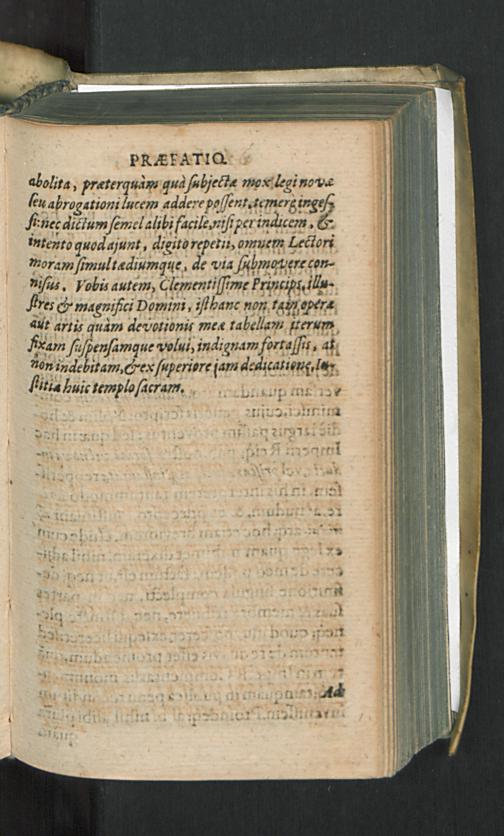 PRÆFATIO.
abolita, præterquàm quà subjectæ mox legi novæ
seu abrogationi lucem addere possent, temerè inges-
si: nec dictum semel alibi facile, nisi per indicem, &
intento quod ajunt, digito repetii, omnem Lectori
moram simul tædiumque, de via submovere con-
nisus. Vobis autem, Clementissime Princips, illu-
stres & magnifici Domini, isthanc non tam operæ
aut artis quàm devotionis meæ tabellam iterum
fixam suspensamque volui, indignam fortassis, at
non indebitam, & ex superiore jam dedicatione, Ju-
stitiæ huic templo sacram.
Ad